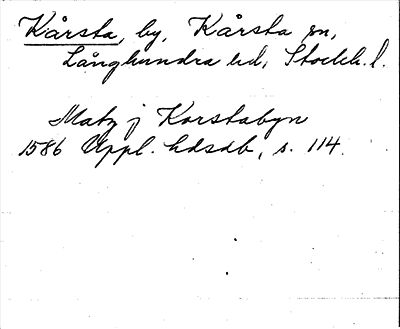 Kårsta, by, Kårsta sn,
Långhundra hd, Stockh. l.
Matz j Korstabyn
1586 Uppl. hdsdb, s. 114.